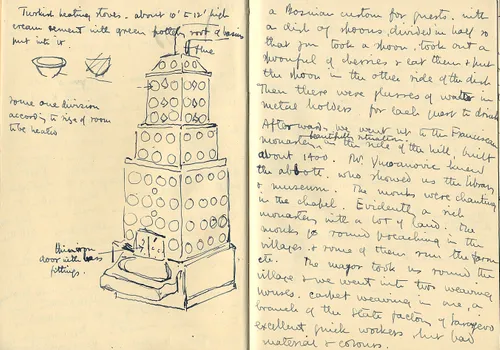 Turkish heating stoves. about 10' to 12' high
cream cement with green pottery sort of basins
put into it.
flue
some one division
according to size of room
to be heated
door with brass
fittings.
a Bosnian custom for guests. with
a dish of spoons, divided in half so
that you took a spoon, took out a
spoonful of cherries & eat them & put
the spoon in the other side of the dish
Then there were glasses of water in
metal holders for each guest to drink
Afterwards we went up to the Franciscan
monastery beautifully situated in the side of the hill, built
about 1400. Mr. knew
the abbott, who showed us the library
& museum. The monks were chanting
in the chapel. Evidently a rich
monastery with a lot of land. The
monks go round preaching in the
villages & some of them run the farm
etc. The mayor took us round the
village & we went into two weaving
houses. carpet weaving in one, a
branch of the state factory of Sarajevo
excellent quick workers, but bad
material & colours.